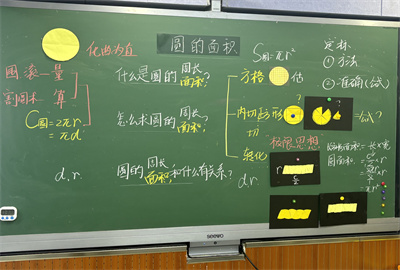 化曲为直
圆的面积
S圆=πr²
定标
①方法
②准确(公式)
圆 滚一量
割圆术 算
C圆=2πr
=πd
什么是圆的周长
面积?
怎么求圆的周长
面积?
圆的周长
面积和什么有关系?
d,r.
d r
方格 估
内切正多形
切
转化
极限思想
公式?
长方形面积=长×宽
圆面积=
πr²
r
seewo